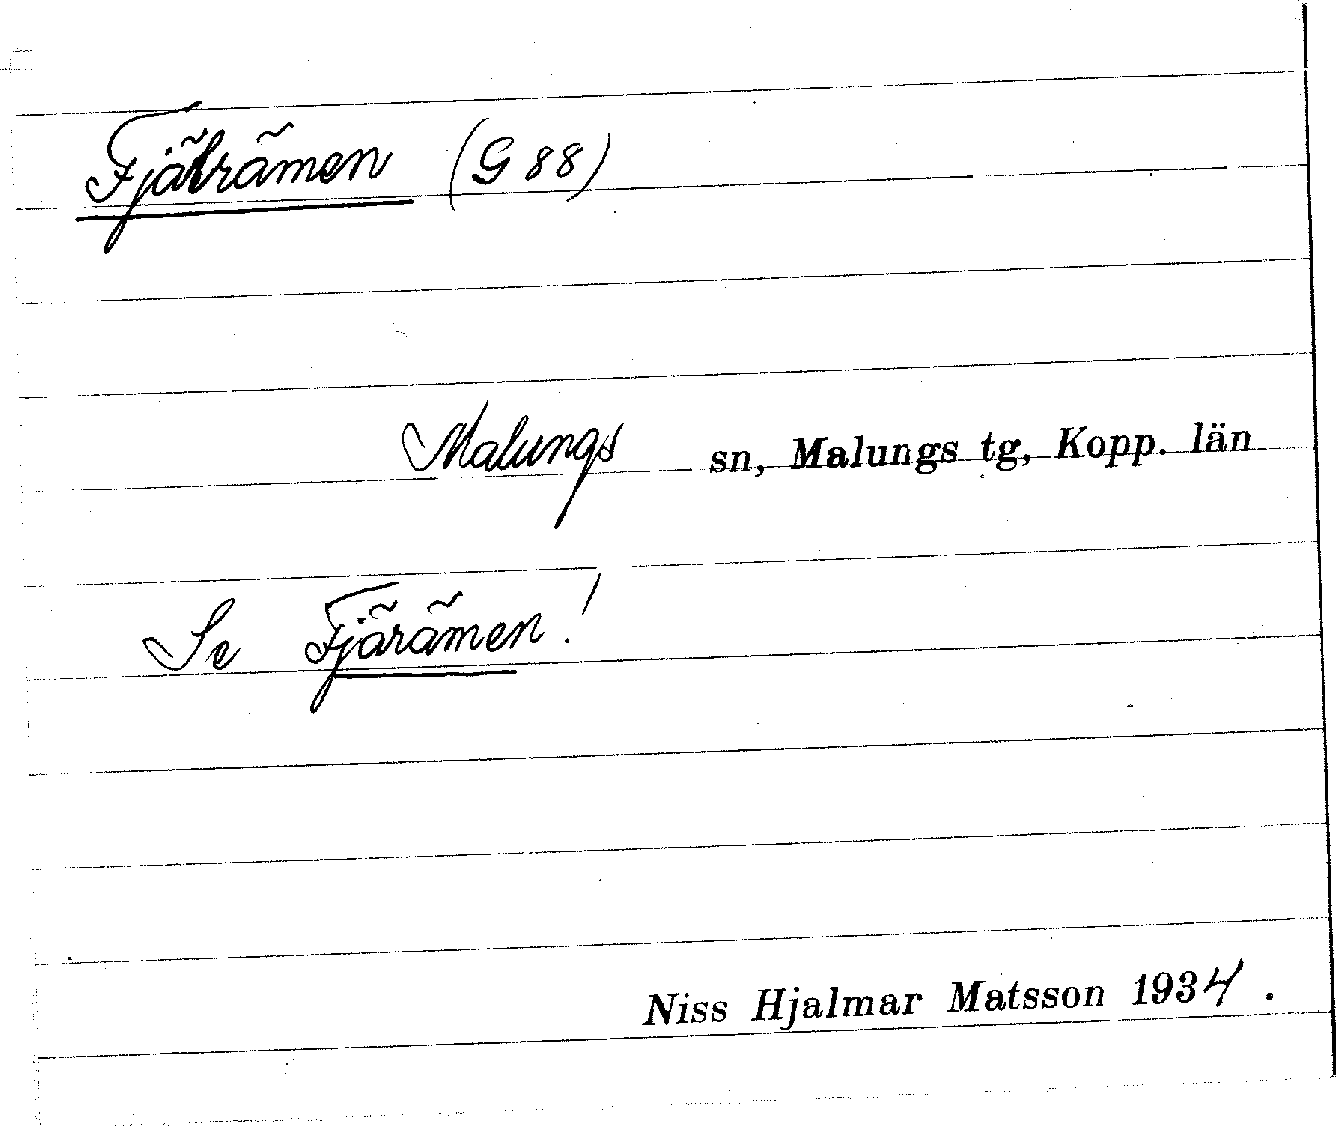 Fjälrämen (G 88)
Malungs sn, Malungs tg, Kopp. län
Se Fjärämen!
Niss Hjalmar Matsson 1934.